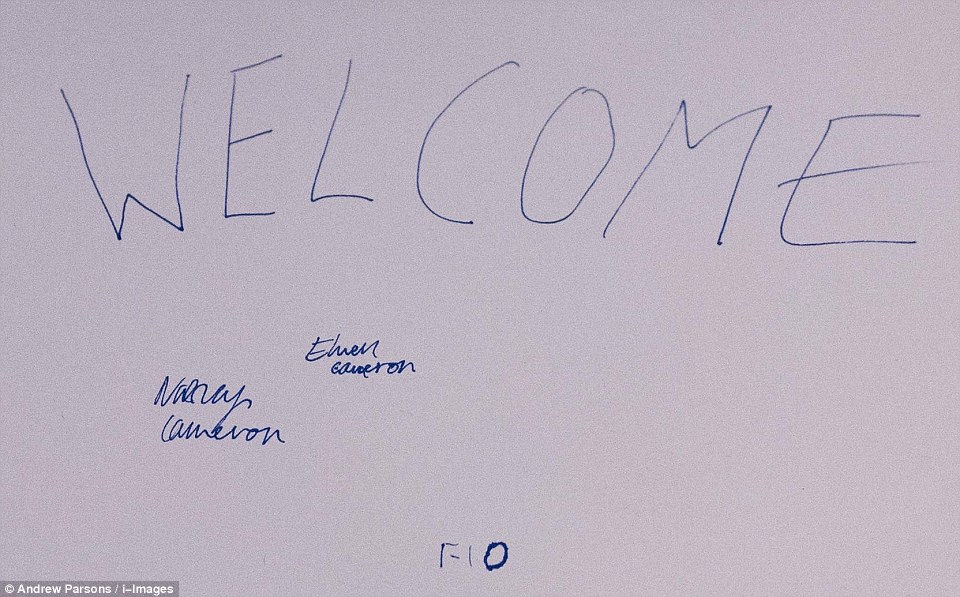 WELCOME
Elwen
cameron
Nancy
Cameron
FLO
© Andrew Parsons / I-Images